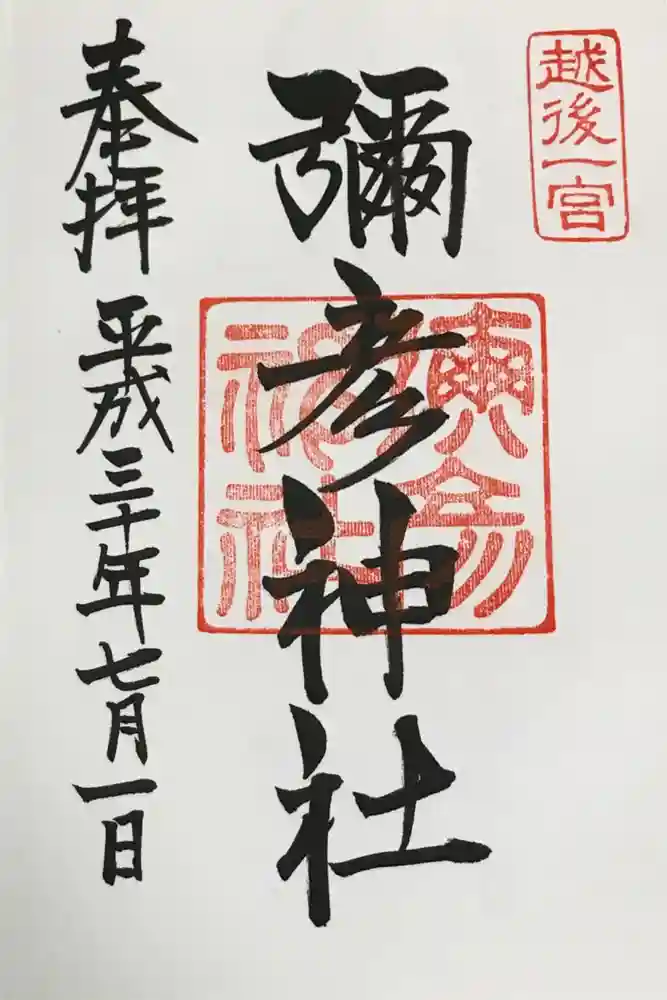 越後一宮
彌彦神社
奉拝 平成三十年七月一日